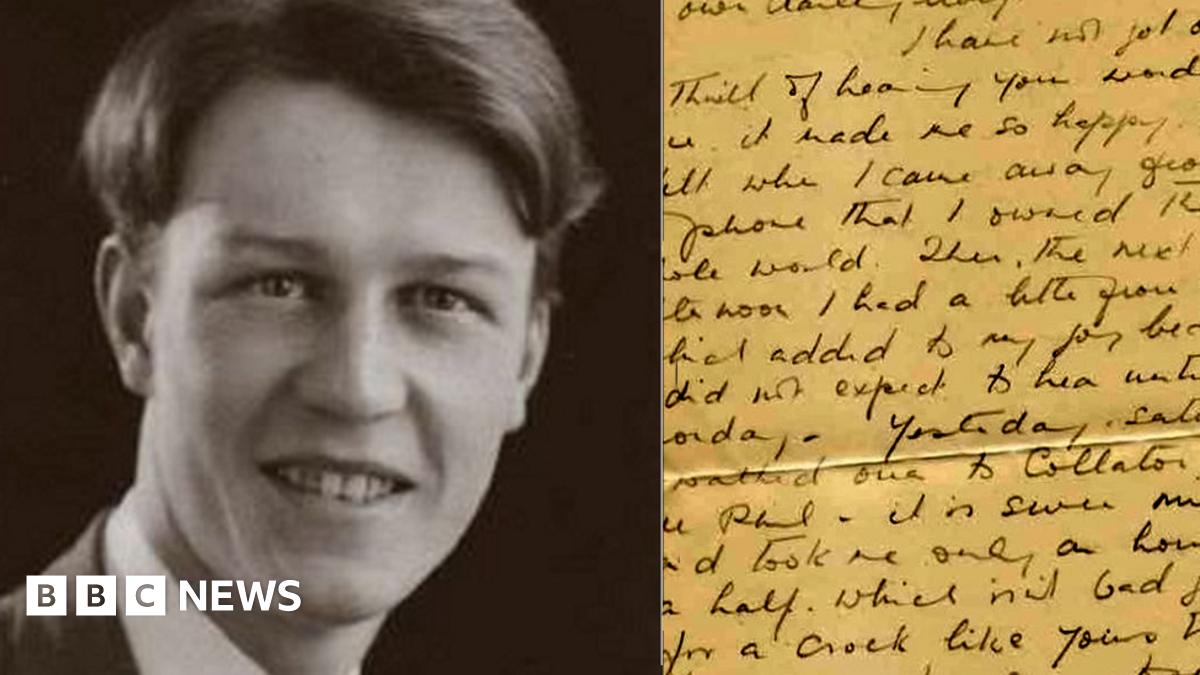 BBC NEWS
own darling
I have not got
Thrill of hearing your word
it made me so happy.
elt when I came away
phone that I owned th
ole world. Then, the next
noon I had a letter from
hich added to my joy bec
did not expect to hear unti
orday - Yesterday, sat
walked over to
Paul - it is seven mi
nd took me only an hour
a half. which isn't bad f
for a crock like yours